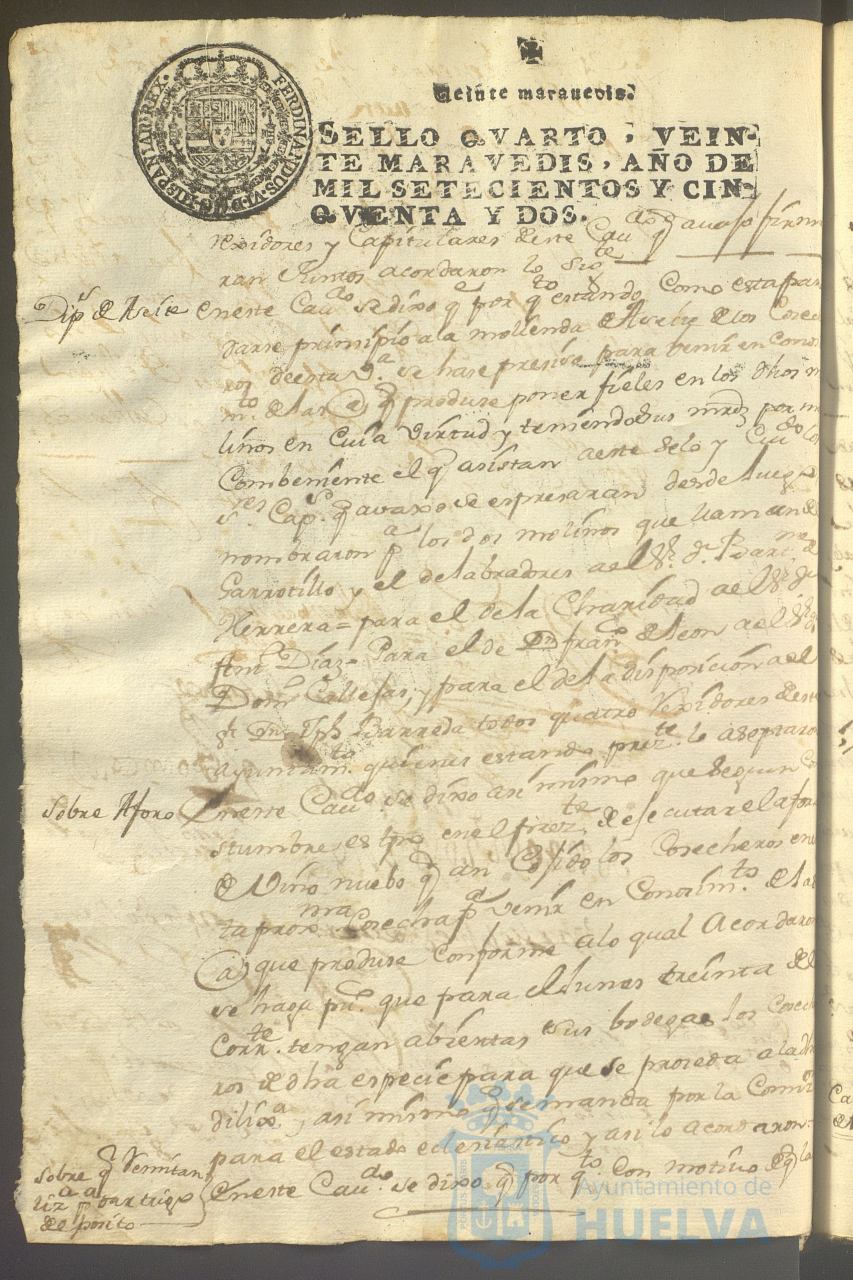 FERDINANDUS·VI·D·G·HISPANIAR·REX·
Veinte maravedis.
SELLO QVARTO, VEIN-
TE MARAVEDIS, AÑO DE
MIL SETECIENTOS Y CIN-
QVENTA Y DOS.
rexidores y Capitulares deste Cau.do q avaxo firma
ran Juntos acordaron lo sig.te
Dip.s de Aseite
En este Cau.do se dixo q por q.to estando Como esta para
darse prinsipio a la molienda de Aseite de los Cose
ros de esta V.a se hase presiso para venir en Conosi
m.to de las @ q produse poner fieles en los dhos m
linos en Cuia Virtud y teniendo sus mrds por m
Combeniente el q asistan
s.res Cap.s q avaxo se espresaran desde luego
nombraron p.a los dos molinos que llaman de
Garrotillo y el de labradores a el S.r d.n
Herrera = para el de la Charidad a el S.r d.n
Ant.o Díaz = Para el de D.n Fran.co de Leon a el S.r d.n
Dom.o Callejas, y para el de la disposision a el
S.r D.n Jph Barreda todos quatro rexidores deste
ayuntam.to quienes estando prez.te lo aseptaron
Sobre Aforo
En este Cau.do se dixo asi mismo que segun Co
stumbre es tpo en el prez.te de ejecutar el afor
de Vino nuebo q an Cojido los Cosecheros en
ta prox.ma Cosecha p.a venir en Consim.to de las
@ que produse Conforme a lo qual Acordaron
se haga pu.co que para el lunes treinta del
Corr.te tengan abiertas sus bodegas los Cosech
ros de dha espesie para que se proseda a la dha
dilix.a, asi mismo q se manda por la
para el estado eclesiástico y asi lo acordaron
Sobre q Remitan
trigo
de posito
En este Cau.do se dixo q por q.to Con motivo de q la
Ayuntamiento de
HUELVA